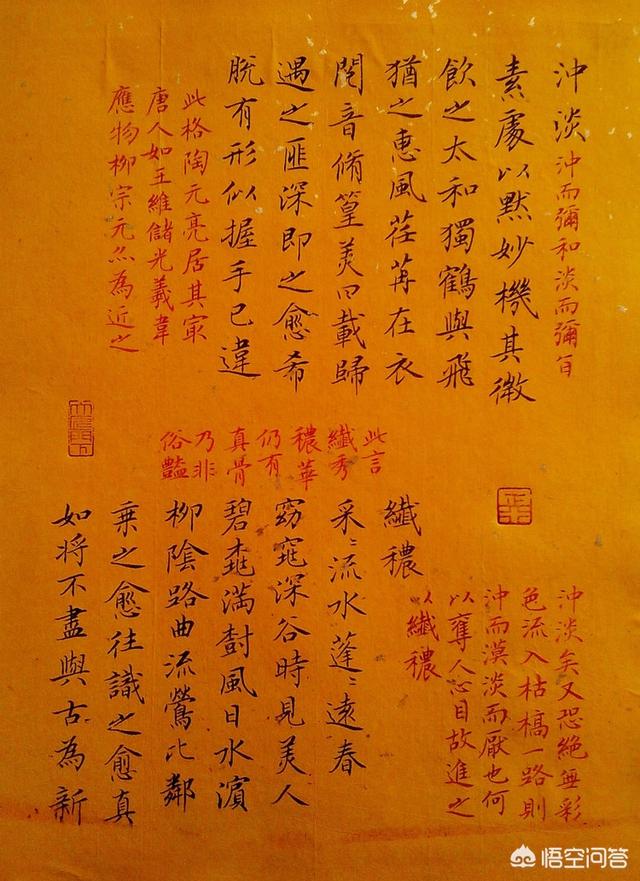 沖淡 沖而彌和淡而彌旨
素處以默妙機其微
飲之太和獨鶴與飛
猶之惠風荏苒在衣
閱音脩篁美曰載歸
遇之匪深即之愈希
脫有形似握手已違
此格陶元亮居其最
唐人如王維儲光羲韋
應物柳宗元亦為近之
沖淡矣又恐絕無彩
色流入枯槁一路則
沖而漠淡而厭也何
以奪人心目故進之
以纖穠
纖穠
此言
纖秀
穠華
仍有
真骨
乃非
俗豔
采〻流水蓬〻遠春
窈窕深谷時見美人
碧桃滿樹風日水濱
柳陰路曲流鶯比鄰
乘之愈往識之愈真
如將不盡與古為新
悟空问答